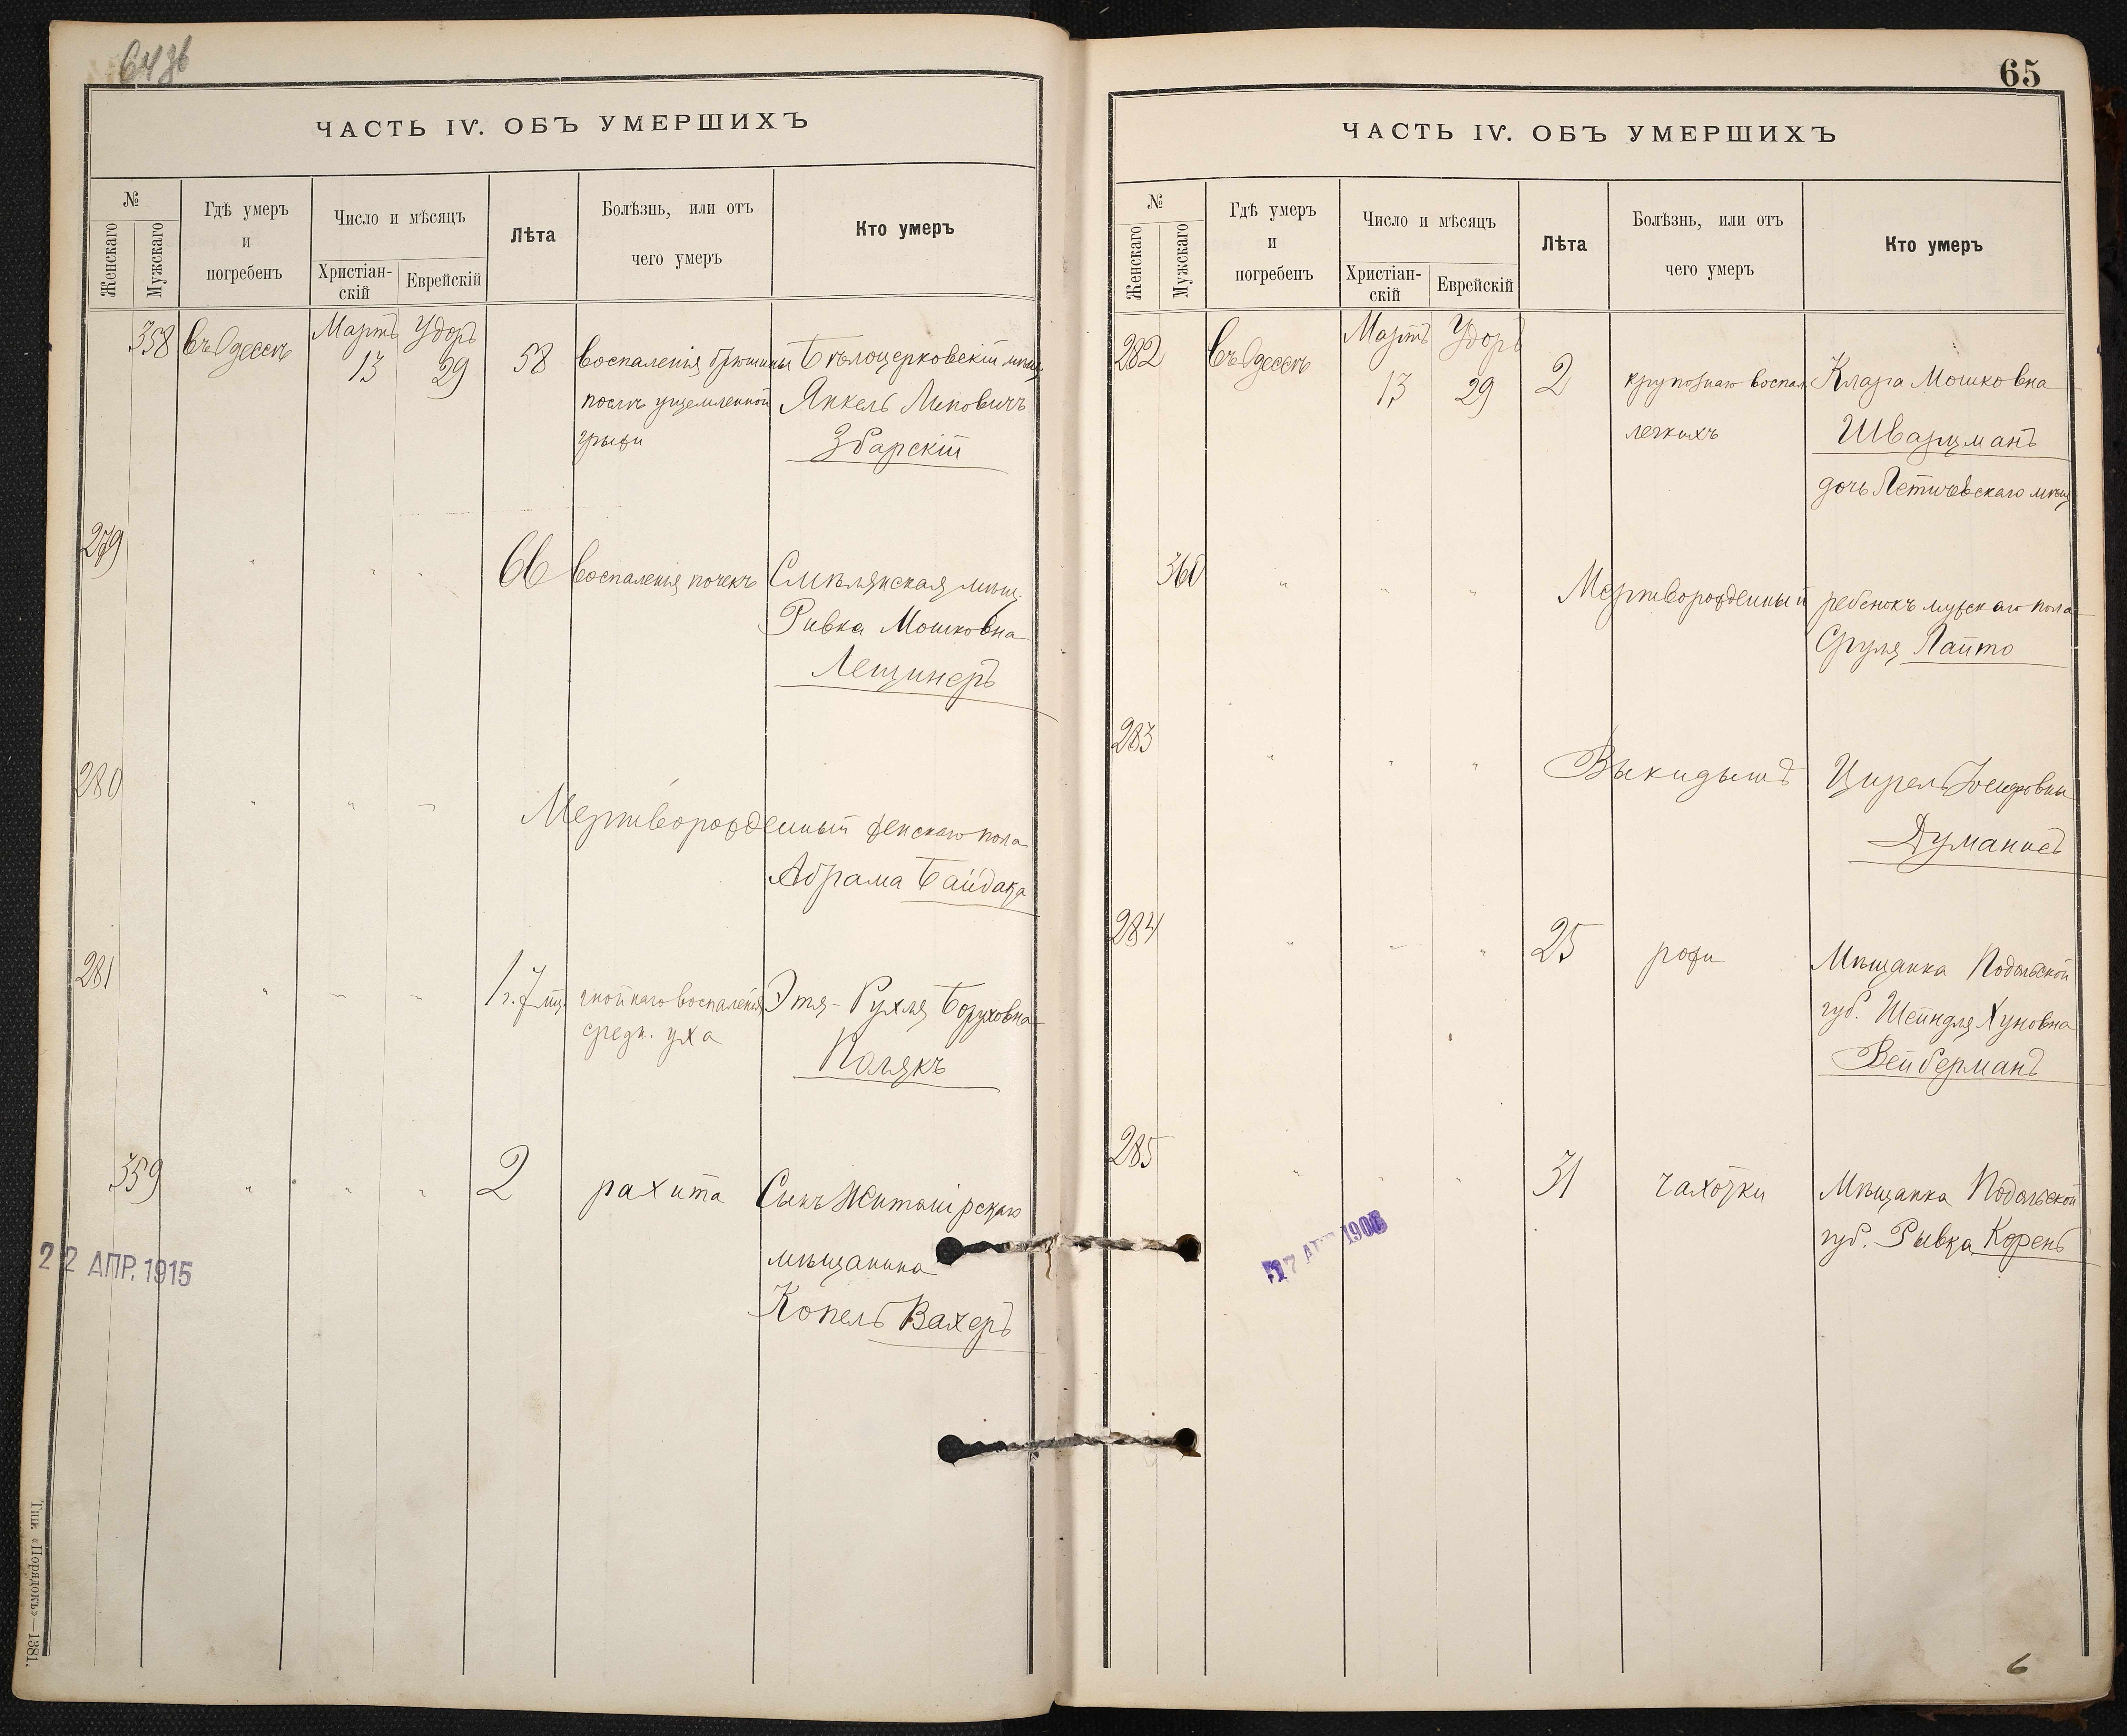 ЧАСТЬ IV. ОБЪ УМЕРШИХЪ
№
Женскаго
Мужскаго
Гдѣ умеръ
и
погребенъ
Число и мѣсяцъ
Христіан-
скій
Еврейскій
Лѣта
Болѣзнь, или отъ
чего умеръ
Кто умеръ
358 въ Одессѣ Мартъ 13 Удоръ 29 58 воспаленія брюшины Бѣлоцерковскій мѣщ
послѣ ущемленной Янкель Липовичъ
грыжи Збарскій
279 " " " 66 воспаленія почекъ Смѣлянская мѣщ.
Ривка Мошковна
Лещинеръ
280 " " " Мертворожденный женскаго пола
Абрама Байдака
281 " " " 1 г. 7 мц. гнойнаго воспаленія Этя-Рухля Боруховна
средн. уха Полякъ
359 " " " 2 рахита Сынъ Житомірскаго
мѣщанина
Копель Вахеръ
22 АПР. 1915
Тип. «Порядокъ»—1381.
65
ЧАСТЬ IV. ОБЪ УМЕРШИХЪ
№
Женскаго
Мужскаго
Гдѣ умеръ
и
погребенъ
Число и мѣсяцъ
Христіан-
скій
Еврейскій
Лѣта
Болѣзнь, или отъ
чего умеръ
Кто умеръ
282 въ Одессѣ Мартъ 13 Удоръ 29 2 крупознаго воспал. Клара Мошковна
легкихъ Шварцманъ
дочь Летичевскаго мѣщ
360 " " " Мертворожденный ребенокъ мужскаго пола
Сруля Пайто
283 " " " Выкидышъ Цирель Іосифовны
Думанисъ
284 " " " 25 рожи Мѣщанка Подольской
губ. Шейндля Хуновна
Вейберманъ
285 " " " 31 чахотки Мѣщанка Подольской
губ. Рывка Корень
6